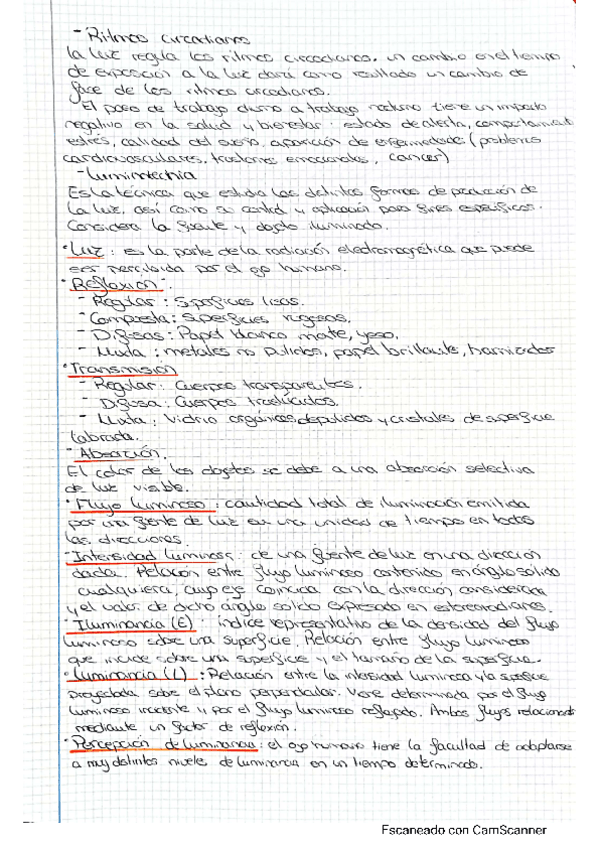 - Ritmos circadianos
La luz regula los ritmos circadianos, un cambio en el tiempo
de exposición a la luz dará como resultado un cambio de
fase de los ritmos circadianos.
El paso de trabajo diurno a trabajo nocturno tiene un impacto
negativo en la salud y bienestar: estado de alerta, comportamient
estrés, calidad del sueño, aparición de enfermedades (problemas
cardiovasculares, trastornos emocionales, cancer)
- Luminotechia
Es la técnica que estudia las distintas formas de producción de
la luz, así como su control y aplicación para fines específicos.
Considera la fuente y objeto iluminado.
· Luz: es la parte de la radiación electromagnética que puede
ser percibida por el ojo humano.
· Reflexión.
- Regular: superficies lisas.
- Compuesta: superficies rugosas.
- Difusas: Papel blanco mate, yeso.
- Mixta: metales no pulidos, papel brillante, barnizados
· Transmisión
- Regular: Cuerpos transparentes.
- Difusa: Cuerpos traslúcidos.
- Mixta: Vidrio orgánicos, depulidos y cristales de superficie
labrada.
- Absorción.
El color de los objetos se debe a una absorción selectiva
de luz visible.
· Flujo luminoso: cantidad total de iluminación emitida
por una fuente de luz en una unidad de tiempo en todas
las direcciones.
- Intensidad luminosa: de una fuente de luz en una dirección
dada. Relación entre flujo luminoso contenido en ángulo solido
cualquiera, cuyo eje coincida con la dirección considerada
y el valor de dicho ángulo solido expresado en estereoradianes.
· Iluminancia (E): índice representativo de la densidad del flujo
luminoso sobre una superficie. Relación entre flujo luminoso
que incide sobre una superficie y el tamaño de la superficie.
· Luminancia (L): Relación entre la intesidad luminosa y la superficie
proyectada sobre el plano perpendicular. Viene determinada por el flujo
luminoso incidente y por el flujo luminoso reflejado. Ambos flujos relacionados
mediante un factor de reflexión.
· Percepción de luminancia: el ojo humano tiene la facultad de adaptarse
a muy distintos niveles de luminancia en un tiempo determinado.
Escaneado con CamScanner